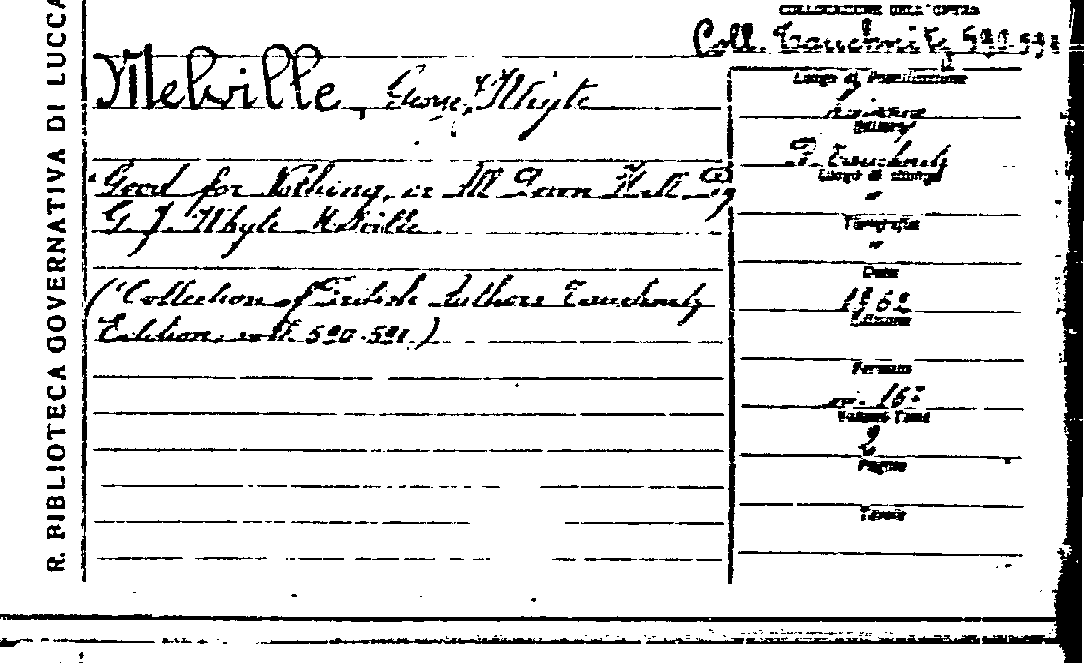 R. BIBLIOTECA GOVERNATIVA DI LUCCA
COLLOCAZIONE DELL'OPERA
Coll. Tauchnitz 590-591
Melville, George Whyte
Good for Nothing, or All Down Hill By
G. J. Whyte Melville
("Collection of British Authors Tauchnitz
Edition, voll. 590-591.)
Luogo di Pubblicazione
Editore
B. Tauchnitz
Luogo di stampa
"
Tipografia
"
Data
1862
Edizione
Formato
in-16°
Volumi Tomi
2
Pagine
Tavole